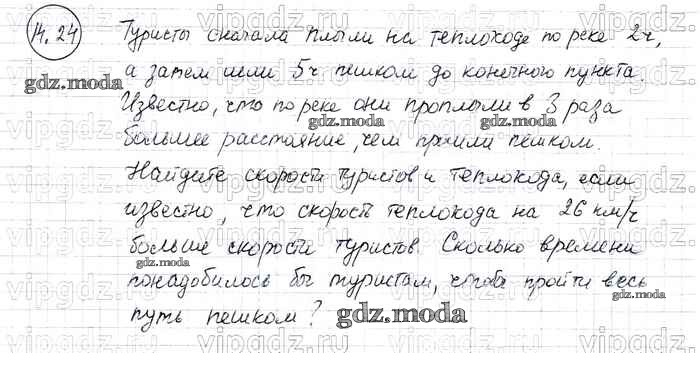 14.24
Туристы сначала плыли на теплоходе по реке 2ч,
а затем шли 5ч пешком до конечного пункта.
Известно, что по реке они проплыли в 3 раза
большее расстояние, чем прошли пешком.
Найдите скорости туристов и теплохода, если
известно, что скорость теплохода на 26 км/ч
больше скорости туристов. Сколько времени
понадобилось бы туристам, чтобы пройти весь
путь пешком?
gdz.moda
gdz.moda
gdz.moda
gdz.moda
gdz.moda
gdz.moda